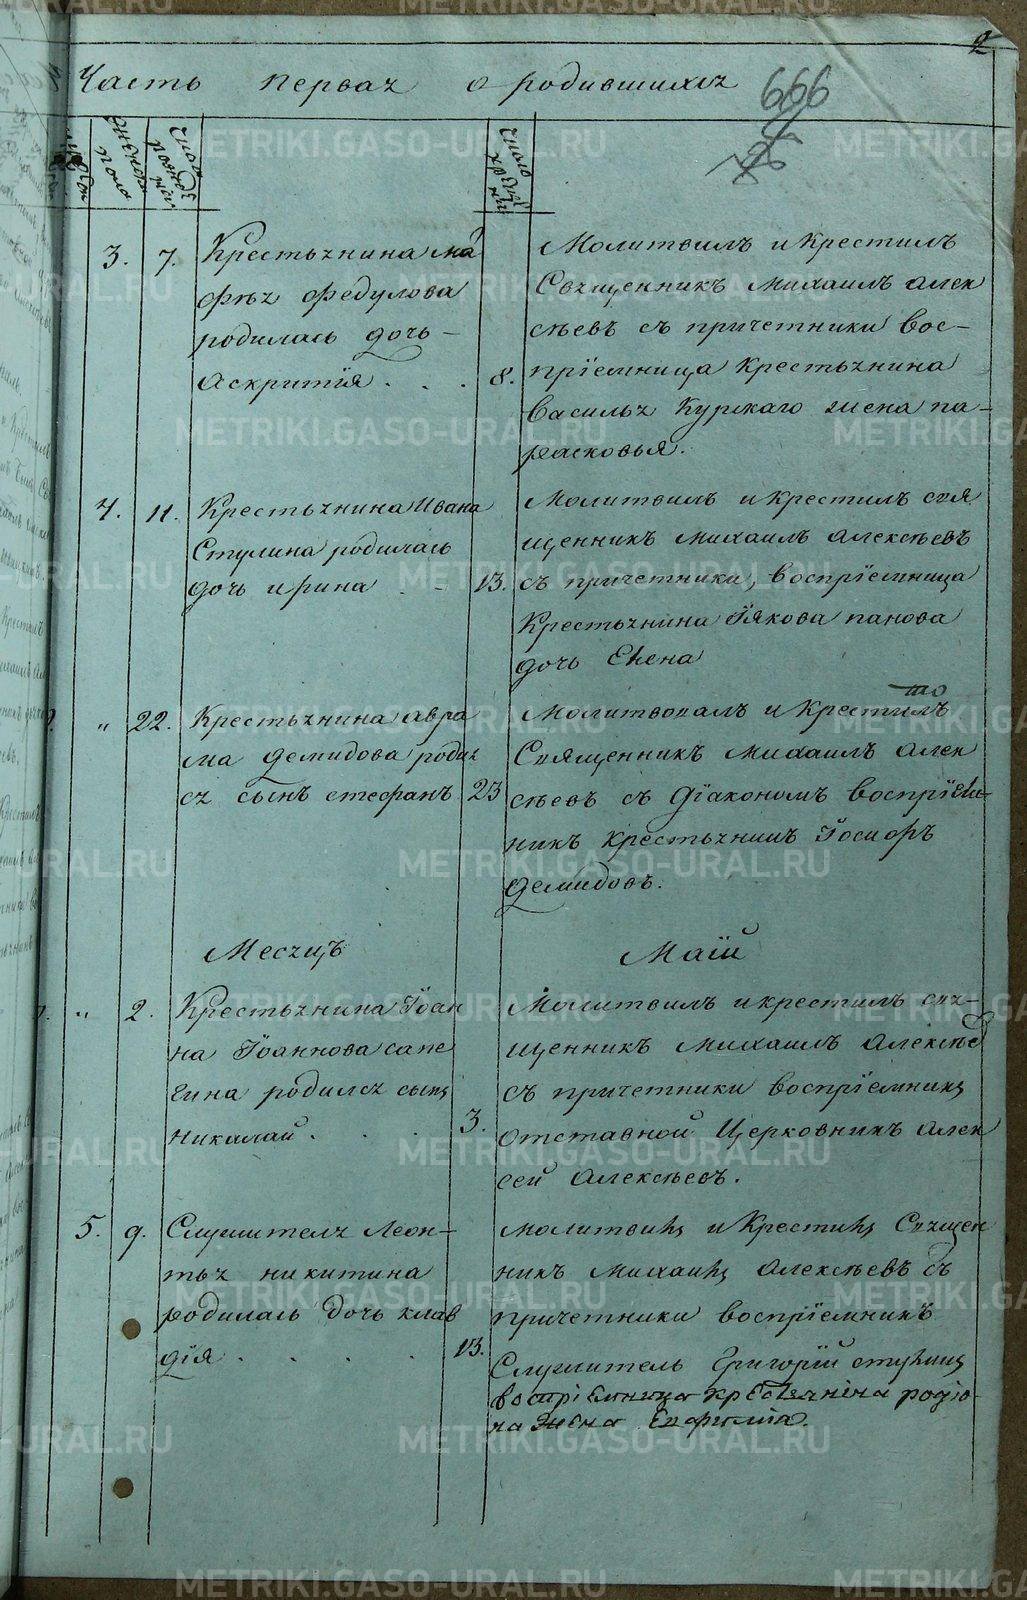 2
Часть первая о родившихся
666
женска пола
число рожденiи
число крещенiи
3. 7. Крестьянина Ма
фѣя Федулова
родилась дочь
Аскритiя . . . 8.
Молитвилъ и крестилъ
Священникъ Михаилъ Алек
сѣевъ съ причетники вос-
прiемница крестьянина
Василья Курскаго жена па-
расковья.
4. 11. Крестьянина Ивана
Стулина родилась
дочь ирина . - 13.
Молитвилъ и крестилъ свя
щенникъ Михаилъ Алексѣевъ
съ причетники, воспрiемница
Крестьянина Iякова панова
дочь Елена
" 22. Крестьянина Авра
ма Демидова родил
ся сынъ стефанъ 23
Молитвовалъ и крестилъ
Священникъ Михаилъ Алек
сѣевъ съ Дiакономъ воспрiем-
никъ крестьянинъ Iосифъ
Демидовъ.
Месяцъ Маiй
" 2. Крестьянина Iоан
на Iоаннова сапе
гина родился сынъ
николай . . . 3.
Молитвилъ и крестилъ свя-
щенникъ Михаилъ Алексѣев
съ причетники воспрiемникъ
отставной Церковникъ Алек
сей Алексѣевъ.
5. 9. Служителя Леон-
тья никитина
родилась дочь клав
дiя . . . . 13.
молитвилъ и Крестилъ Священ
никъ Михаилъ Алексѣевъ съ
причетники воспрiемникъ
Служитель Григорiй стулинъ
воспрiемница крестьянина родiо-
на жена Евфимiа.
METRIKI.GASO-URAL.RU